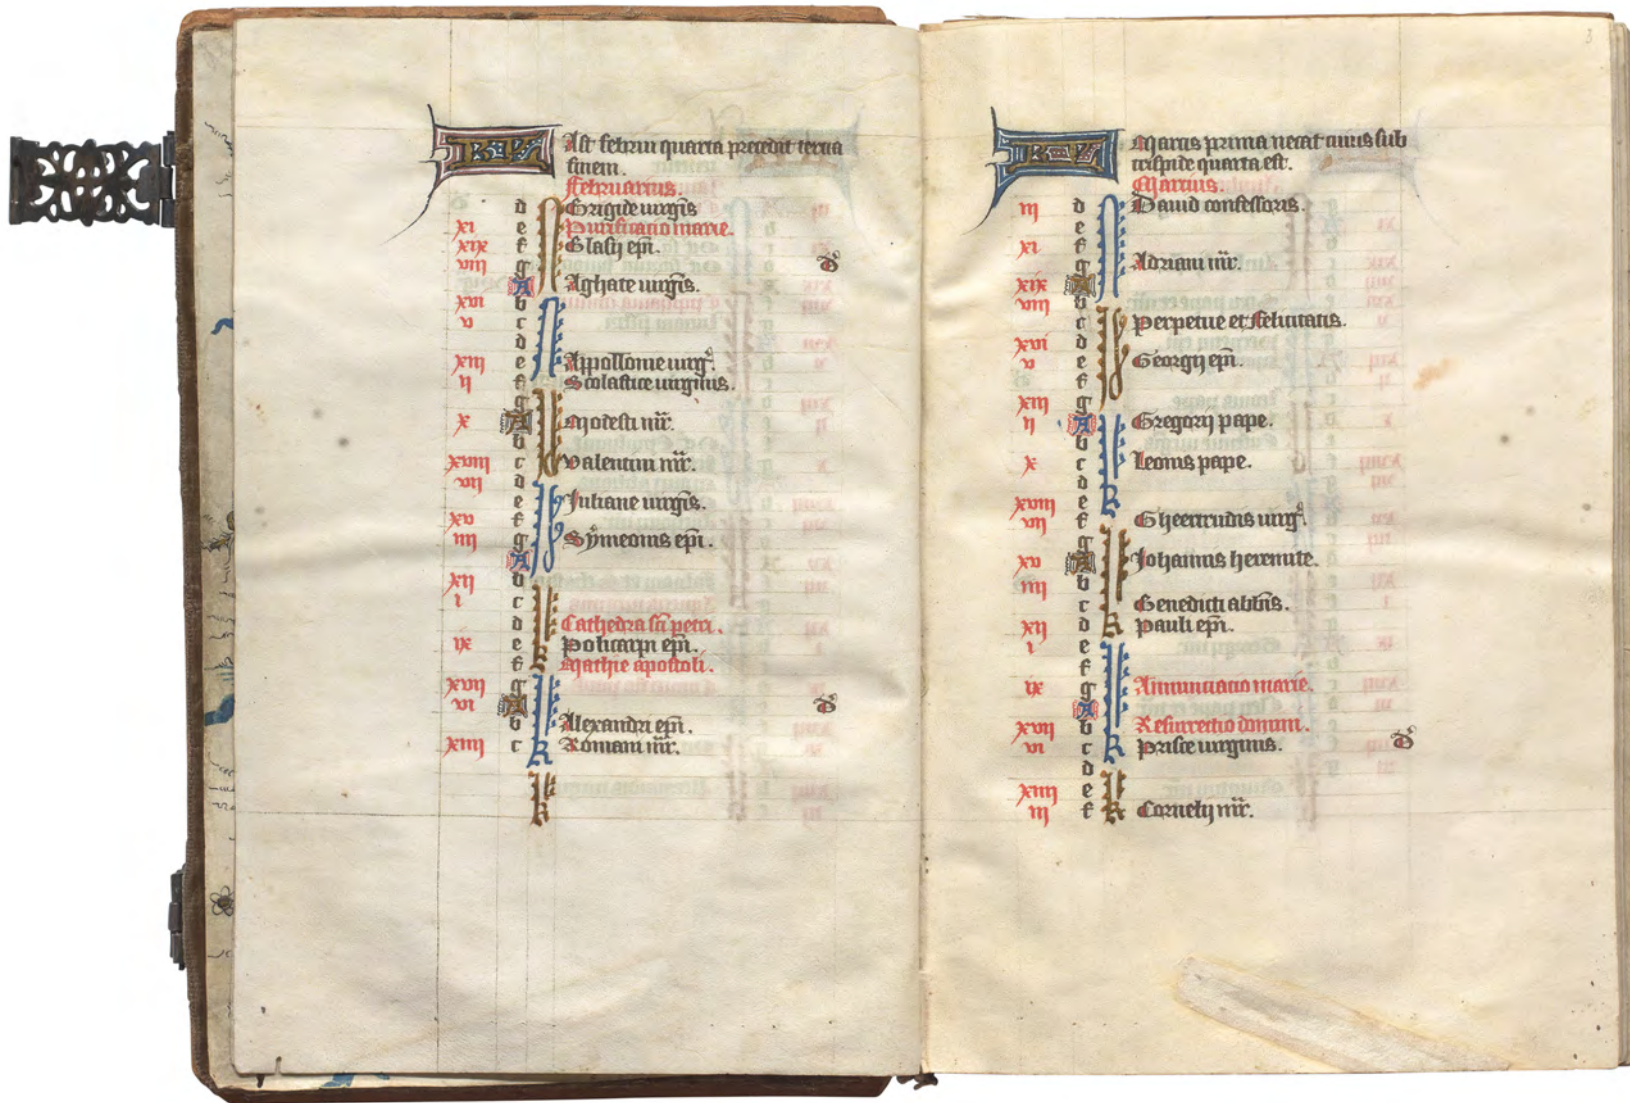 KL Ast februi quarta precedit tertia
finem.
Februarius.
d Brigide virgīs
xi e Purificatio marie.
xix f Blasij epī.
viii g D
A Aghate virgīs.
xvi b
v c
d
xiii e Appollonie virgꝭ.
ij f Scolastice virginis.
g
x A Modesti mr̄.
b
xviii c Valentini mr̄.
vij d
e Juliane virgīs.
xv f
iiij g Symeonis epī.
A
xij b
i c
d Cathedra scī petri.
ix e Policarpi epī.
f Mathie apostoli.
xvij g
vi A D
b Alexandri epī.
xiiij c Romani mr̄.
3
KL Martis prima necat cuius sub
cuspide quarta est.
Martius.
iij d David confessoris.
e
xi f
g Adriani mr̄.
xix A
viij b
c Perpetue et felicitatis.
xvi d
v e Georgij epī.
f
xiij g
ij A Gregorij pape.
b
x c Leonis pape.
d
xviij e
vij f Gheertrudis virgꝭ.
g
xv A Johannis heremite.
iiij b
c Benedicti abbīs.
xij d Pauli epī.
i e
f
ix g Annunciatio marie.
A
xvij b Resurrectio domini.
vi c Prisce virginis. D
d
xiiij e
iij f Cornelij mr̄.